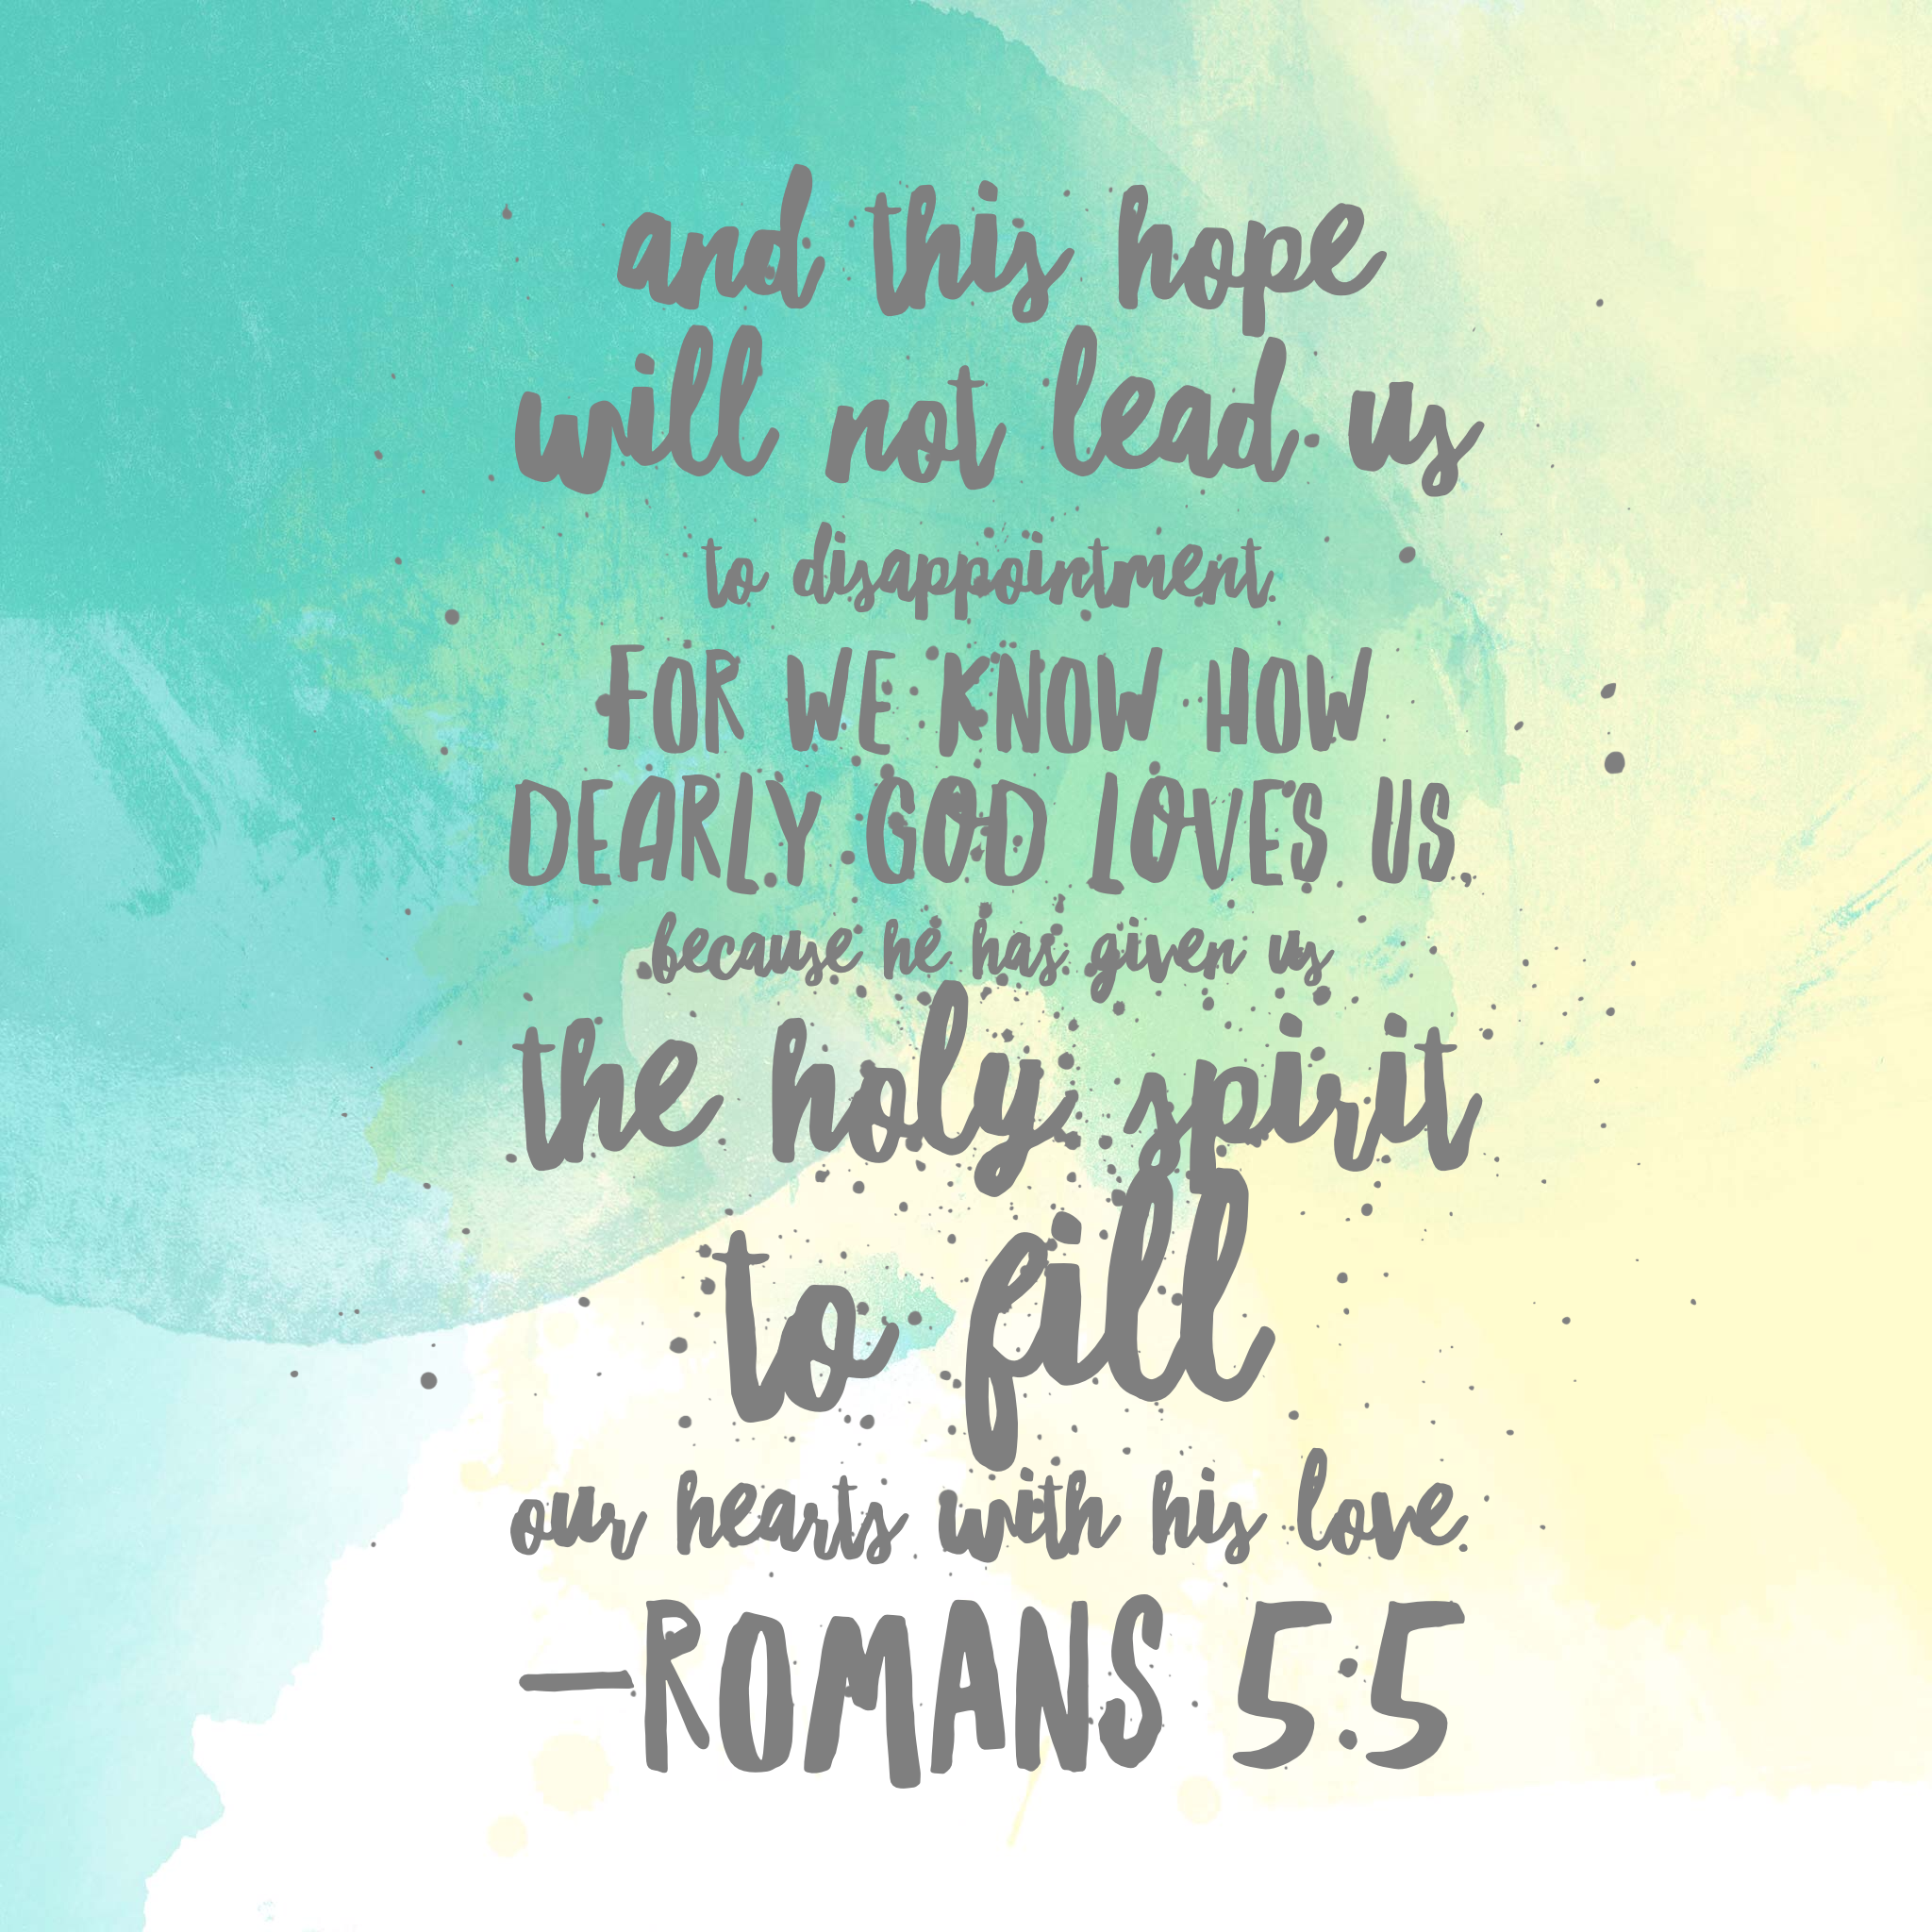 and this hope
will not lead us
to disappointment.
FOR WE KNOW HOW
DEARLY GOD LOVES US,
because he has given us
the holy spirit
to fill
our hearts with his love.
—ROMANS 5:5